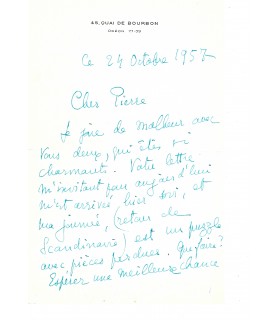 45, QUAI DE BOURBON
ODÉON 71-39
ce 24 Octobre 1957
Cher Pierre
je joue de malheur avec
vous deux, qui êtes si
charmants. Votre lettre
m'invitant pour aujourd'hui
m'est arrivée hier soir, et
ma journée, (retour de
Scandinavie) est un puzzle
avec pièces perdues. Que faire?
Espérer une meilleure chance